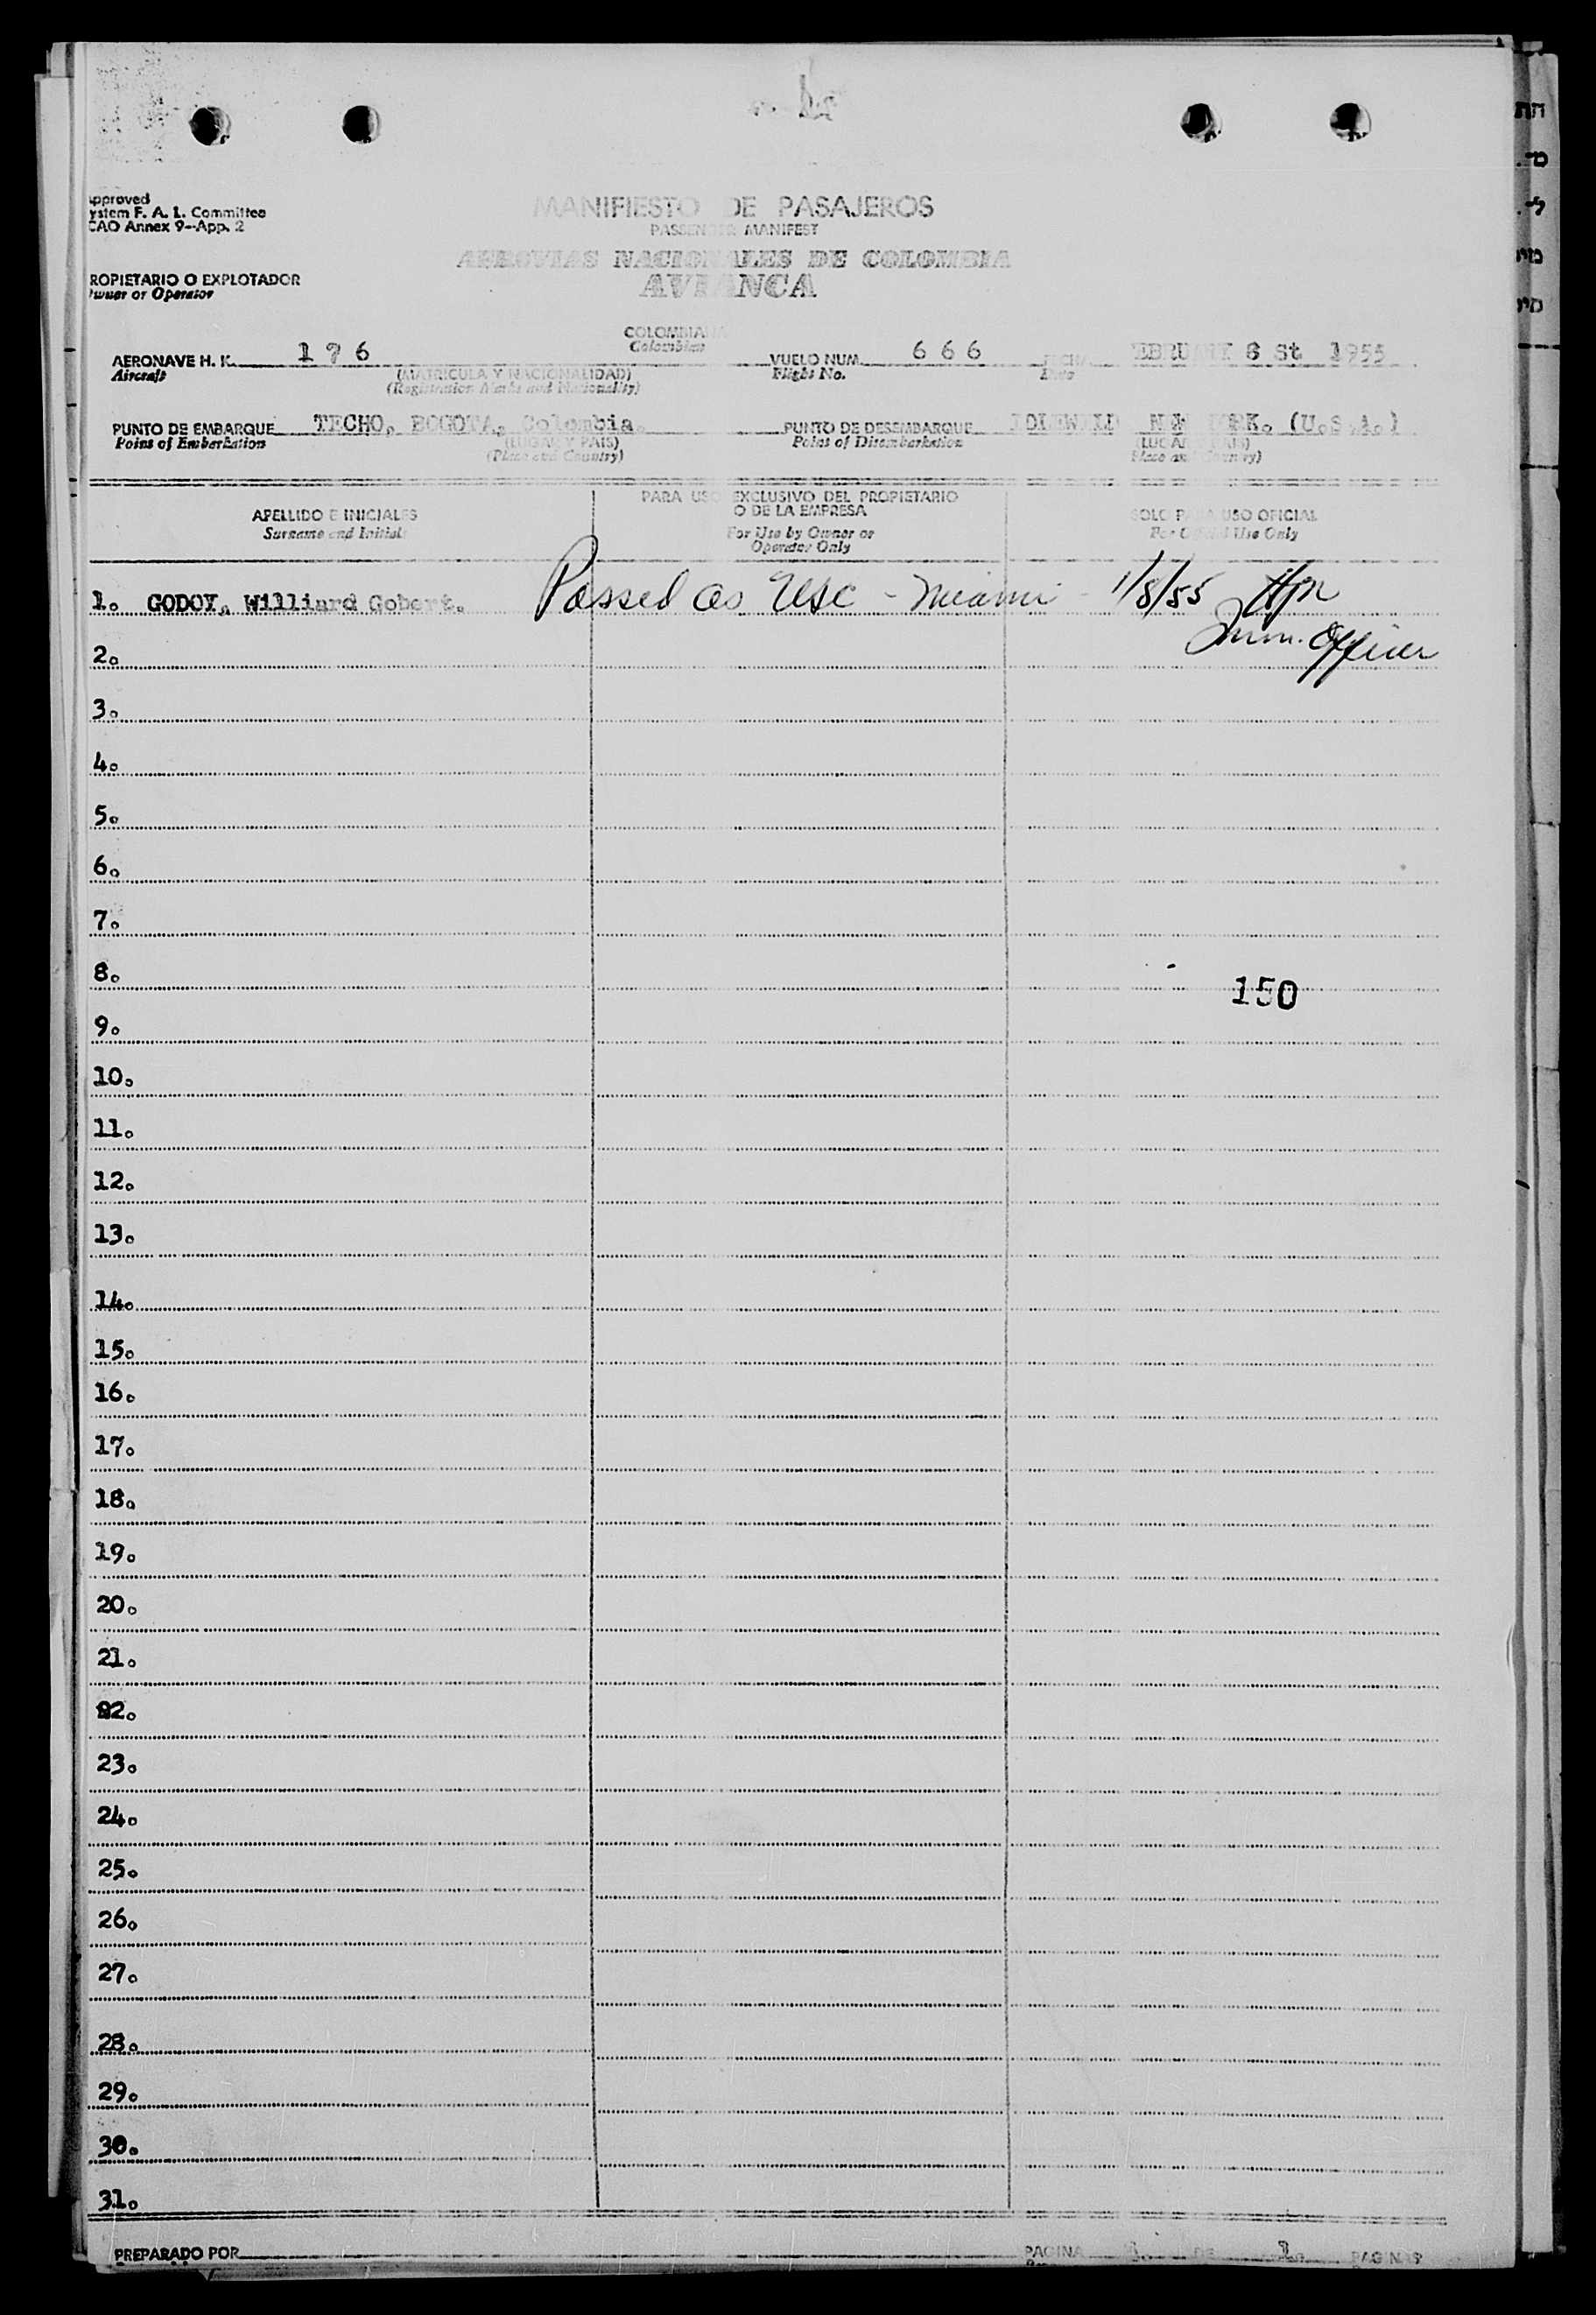 Approved
ystem F. A. L. Committee
CAO Annex 9--App. 2
MANIFIESTO DE PASAJEROS
PASSENGER MANIFEST
AEROVIAS NACIONALES DE COLOMBIA
AVIANCA
ROPIETARIO O EXPLOTADOR
Owner or Operator
COLOMBIANA
Colombian
AERONAVE H. K. 1 7 6 VUELO NUM. 6 6 6 FECHA EBRUARY 8 St 1955
Aircraft (MATRICULA Y NACIONALIDAD) Flight No. Date
(Registration Marks and Nationality)
PUNTO DE EMBARQUE TECHO, BOGOTA, Colombia. PUNTO DE DESEMBARQUE IDLEWILD NEW YORK. (U.S.A.)
Point of Embarkation (LUGAR Y PAIS) Point of Disembarkation (LUGAR Y PAIS)
(Place and Country) (Place and Country)
APELLIDO E INICIALES PARA USO EXCLUSIVO DEL PROPIETARIO SOLO PARA USO OFICIAL
O DE LA EMPRESA
Surname and Initials For Use by Owner or For Official Use Only
Operator Only
1. GODOY, Williard Gobert. Passed as USC - Miami - 1/8/55
2. Imm. Officer
3.
4.
5.
6.
7.
8.
150
9.
10.
11.
12.
13.
14.
15.
16.
17.
18.
19.
20.
21.
22.
23.
24.
25.
26.
27.
28.
29.
30.
31.
PREPARADO POR PAGINA 1. DE 1. PAGINAS